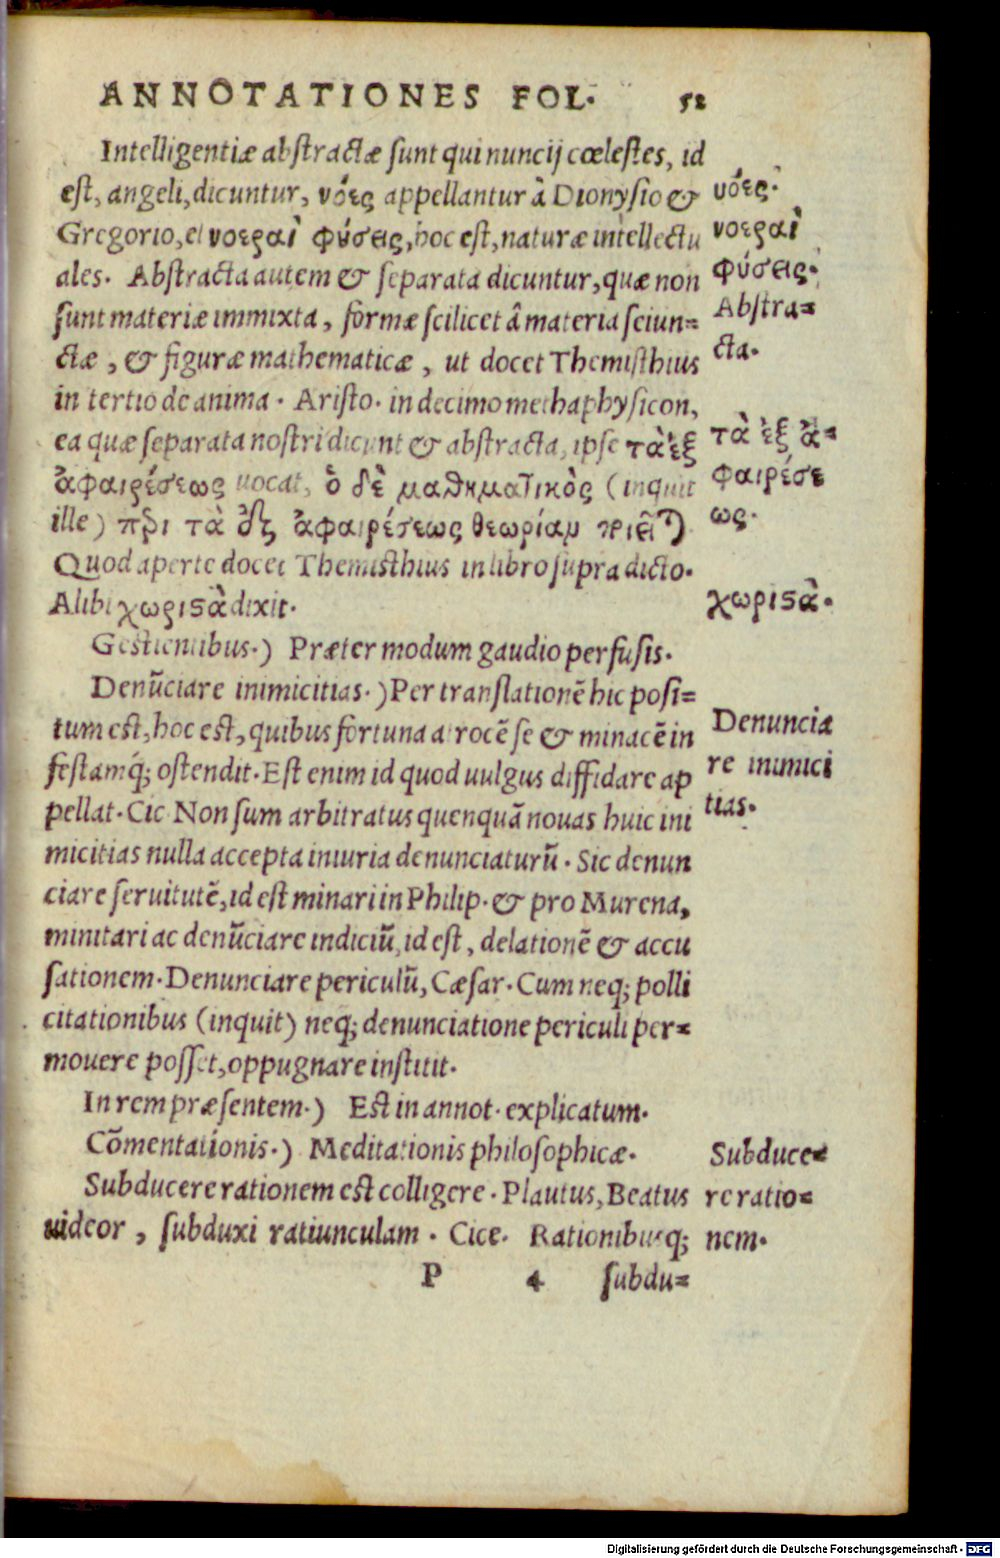 ANNOTATIONES FOL. 52
Intelligentiæ abstractæ sunt qui nuncij cœlestes, id
est, angeli, dicuntur, νόες appellantur à Dionysio &
Gregorio, et νοεραὶ φύσεις, hoc est, naturæ intellectu
ales. Abstracta autem & separata dicuntur, quæ non
sunt materiæ immixta, formæ scilicet â materia seiun=
ctæ, & figuræ mathematicæ, ut docet Themisthius
in tertio de anima. Aristo. in decimo methaphysicon,
ea quæ separata nostri dicunt & abstracta, ipse τὰ ἐξ
ἀφαιρέσεως uocat, ὁ δὲ μαθηματικὸς (inquit
ille) πρὶ τὰ ἐξ ἀφαιρέσεως θεωρίαν ποιεῖται
Quod aperte docet Themisthius in libro supra dicto.
Alibi χωριςὰ dixit.
Gestientibus.) Præter modum gaudio perfusis.
Denũciare inimicitias.) Per translationẽ hic posi=
tum est, hoc est, quibus fortuna atrocẽ se & minacẽ in
festamq́; ostendit. Est enim id quod uulgus diffidare ap
pellat. Cic Non sum arbitratus quenquã nouas huic ini
micitias nulla accepta iniuria denunciaturũ. Sic denun
ciare seruitutẽ, id est minari in Philip. & pro Murena,
minitari ac denũciare indiciũ, id est, delationẽ & accu
sationem. Denunciare periculũ, Cæsar. Cum neq; polli
citationibus (inquit) neq; denunciatione periculi per=
mouere posset, oppugnare instituit.
In rem præsentem.) Est in annot. explicatum.
Cõmentationis.) Meditationis philosophicæ.
Subducere rationem est colligere. Plautus, Beatus
uideor, subduxi ratiunculam. Cice. Rationibusq;
P 4 subdu=
νόες.
νοεραὶ
φύσεις.
Abstra=
cta.
τὰ ἐξ ἀ=
φαιρέσε
ως.
χωριςὰ.
Denuncia
re inimici
tias.
Subduce=
re ratio=
nem.
Digitalisierung gefördert durch die Deutsche Forschungsgemeinschaft - DFG